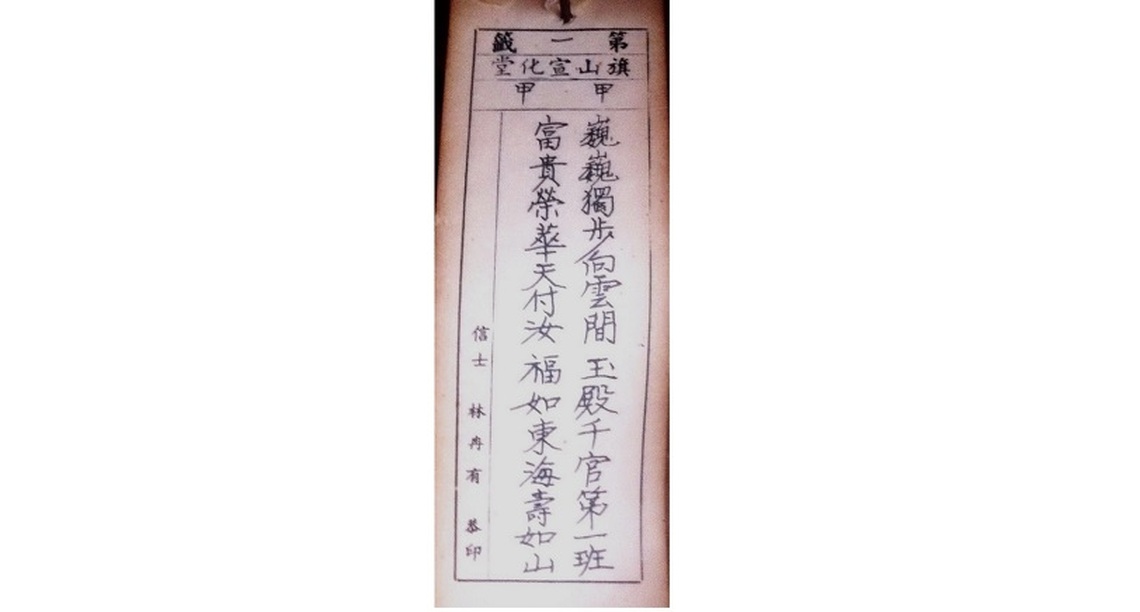 第一籤
旗山宣化堂
甲甲
巍巍獨步向雲間 玉殿千官第一班
富貴榮華天付汝 福如東海壽如山
信士 林冉有 恭印